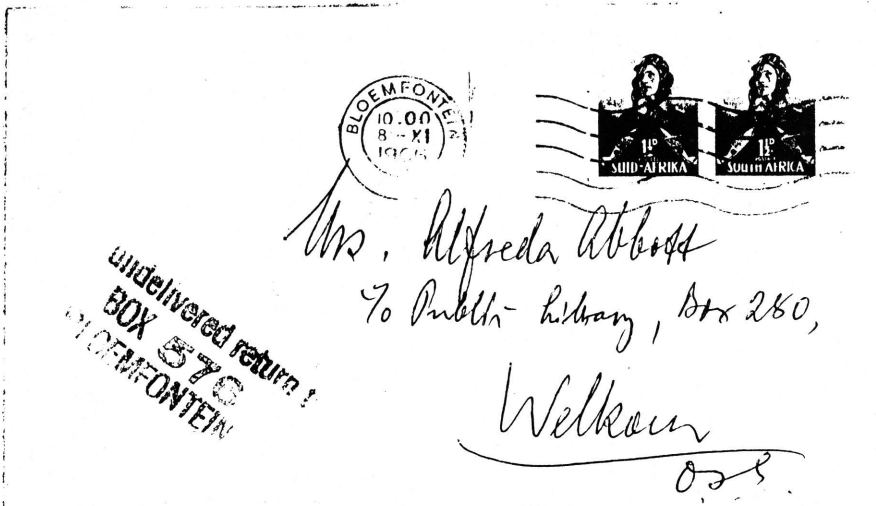 BLOEMFONTEIN
10.00
8 - XI
1½D
SUID-AFRIKA
1½D
SOUTH AFRICA
Mrs. Alfreda Abbott
c/o Public Library, Box 280,
Welkom
O.F.S.
undelivered return
BOX 576
BLOEMFONTEIN